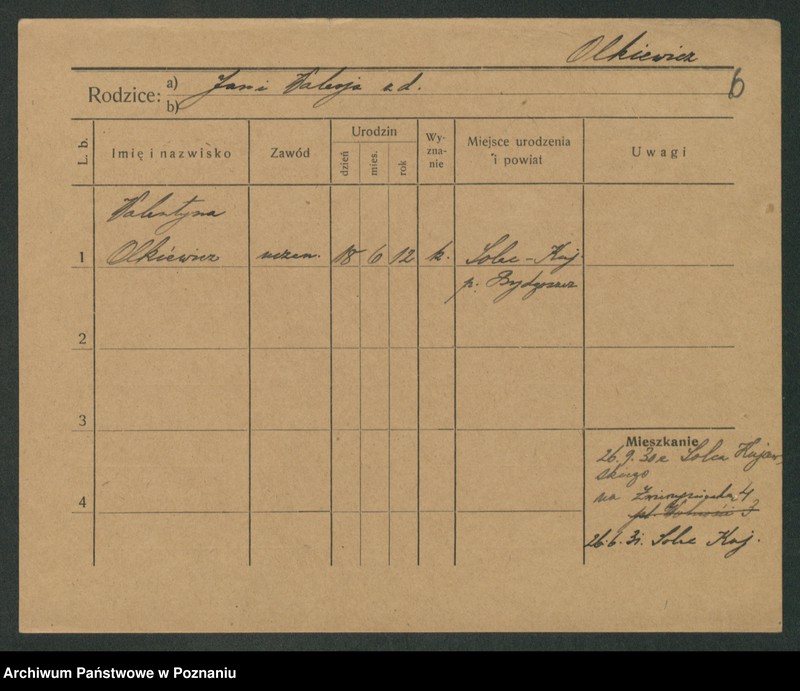 Olkiewicz
6
Rodzice: a) Jan i Waleryja
b)
L. b. Imię i nazwisko Zawód Urodzin dzień mies. rok Wy-zna-nie Miejsce urodzenia i powiat Uwagi
Walentyna
1 Olkiewicz uczen. 18 6 12 k. Solec-Kuj
p. Bydgoszcz
2
3
Mieszkanie
26.9.30 z Solca Kujaw-
skiego
4 na 4
pl. Wolności 3
26.6.31. Solec Kuj.
Archiwum Państwowe w Poznaniu